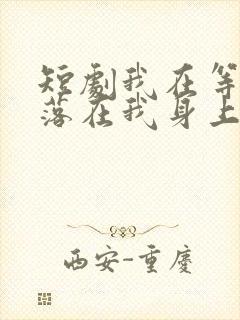 短劇我在等
落在我身上
西安-重慶